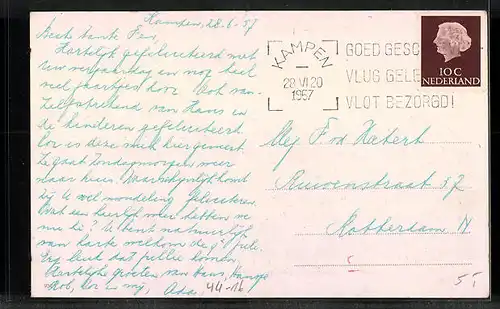 Kampen, 28-6-'57
Beste tante Fen,
Hartelijk gefeliciteerd met
Uw verjaardag en nog heel
veel jaartjes hoor. Ook van-
zelfsprekend van Hans en
de kinderen gefeliciteerd.
is deze week hier geweest.
Ze gaat Zondagmorgen weer
naar huis. Waarschijnlijk komt
zij U wel mondeling feliciteren.
Wat een heerlijk weer hebben we
nu hè? U bent natuurlijk
van harte welkom de
Erg leuk dat jullie komen.
Hartelijke groeten van Hans,
Rob, en mij, Ada.
44-16
KAMPEN
28 VI 20
1957
GOED GESC
VLUG GELE
VLOT BEZORGD!
10 C
NEDERLAND
Mej F vd Hatert
57
Rotterdam N
c
5,-